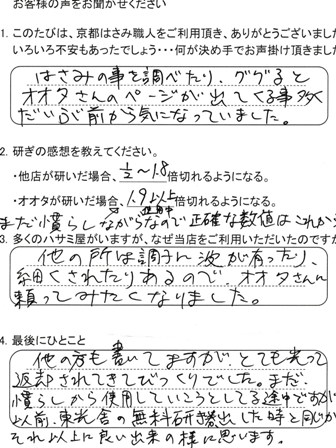 お客様の声をお聞かせください
1. このたびは、京都はさみ職人をご利用頂き、ありがとうございました
いろいろ不安もあったでしょう・・・何が決め手でお声掛け頂きまし
はさみの事を調べたり、ググると
オオタさんのページが出てくる事多く
だいぶ前から気になっていました。
2. 研ぎの感想を教えてください。
・他店が研いだ場合、1/2〜1.8倍切れるようになる。
・オオタが研いだ場合、1.9以上倍切れるようになる。
まだ慣らしながらなので正確な数値はこれから
3. 多くのハサミ屋がいますが、なぜ当店をご利用いただいたのですか
他の所は調子に波が有ったり、
細くされたりあるので、オオタさんに
頼ってみたくなりました。
4. 最後にひとこと
他の方も書いてますが、とても光って
返却されてきてびっくりでした。まだ、
慣らしから使用していこうとしてる途中ですが
以前、東光舎の無料研ぎ出した時と同じか
それ以上に良い出来の様に思います。